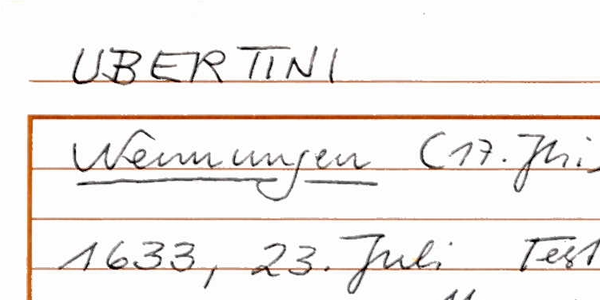 UBERTINI
Nennungen (17. Jh.
1633, 23. Juli Test